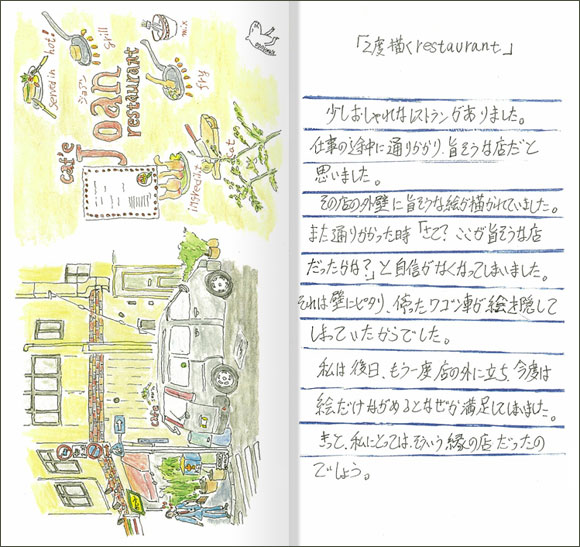 served in hot!
grill
mix
Caf'e
Joan
ジョアン
restaurant
fry
ingredient
eat
cafe
「2度描くrestaurant」
少しおしゃれなレストランがありました。
仕事の途中に通りがかり、旨そうな店だと
思いました。
その店の外壁に旨そうな絵が描かれていました。
また通りがかった時「さて？ここが旨そうな店
だったかな？」と自信がなくなってしまいました。
それは壁にピタリ、停ったワゴン車が絵を隠して
しまっていたからでした。
私は後日、もう一度店の外に立ち、今度は
絵だけながめるとなぜか満足してしまいました。
きっと、私にとっては、そういう縁の店だったの
でしょう。